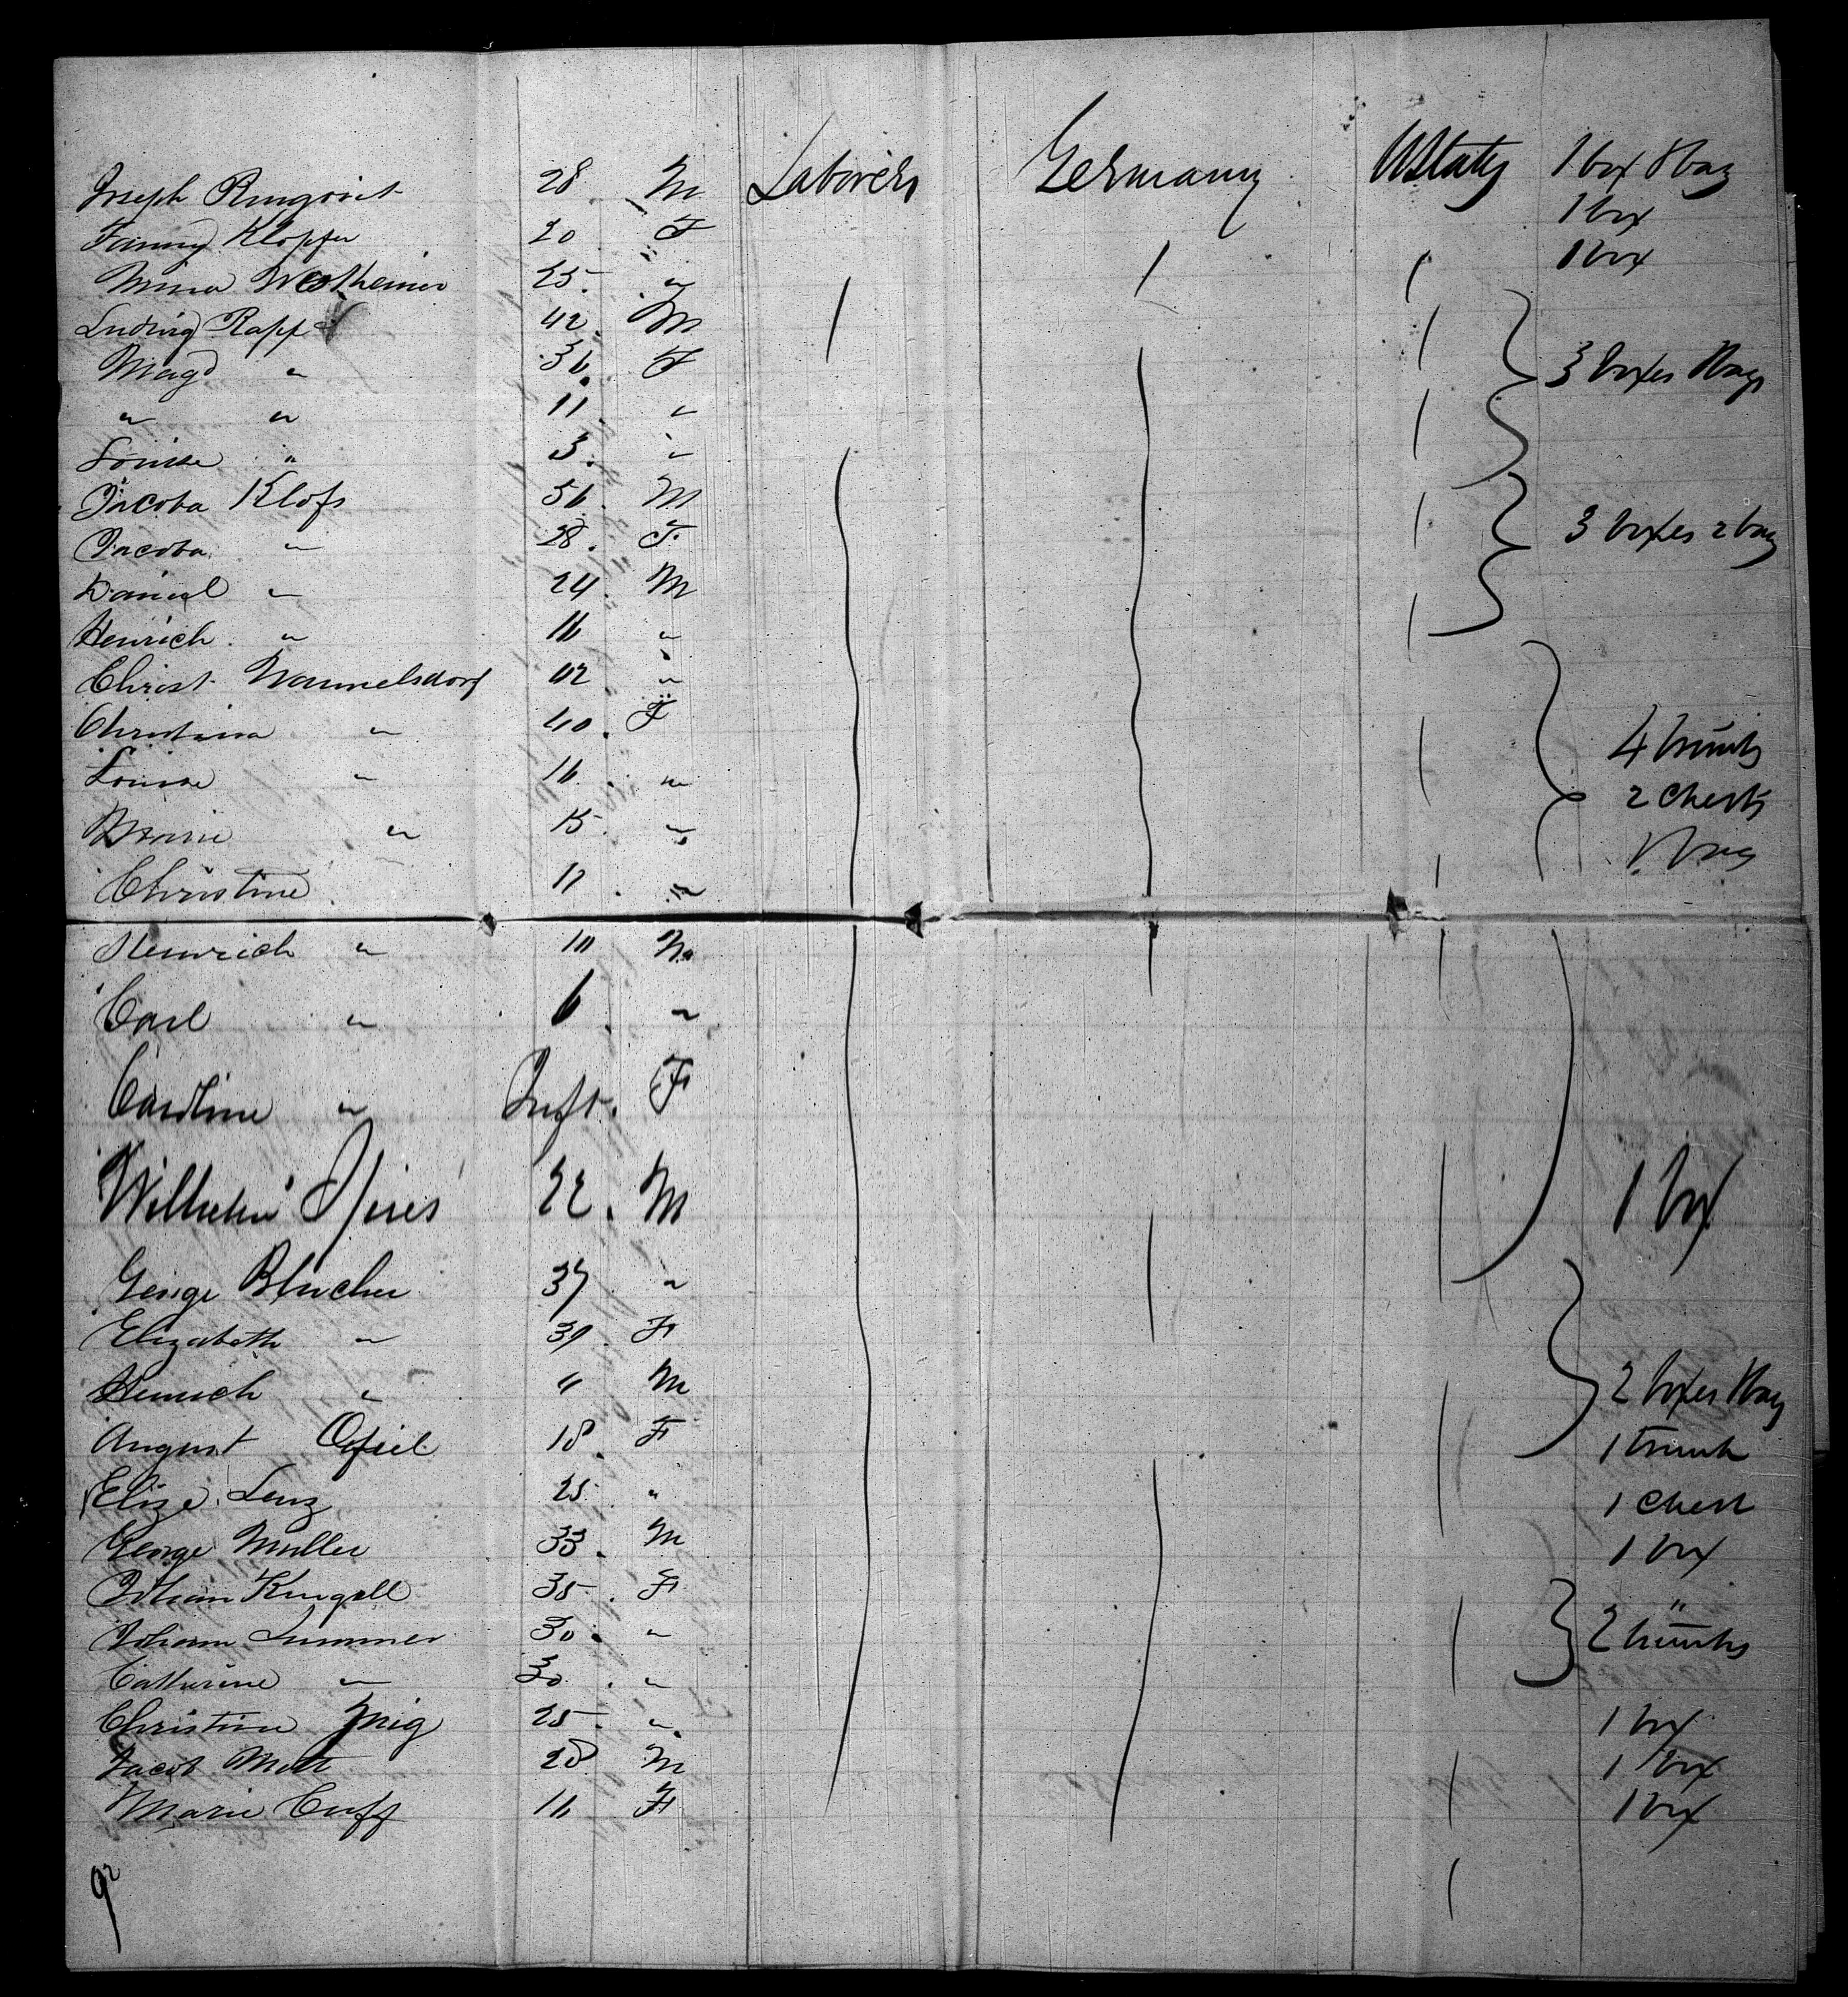 Joseph 28 M Laborers Germany UStates 1 box 1 bag
Fanny Klopfer 20 F 1 box
Mina 25 " 1 box
Ludwig Rapp 42 M
Magd " 36 F 3 boxes 1 bag
" " 11 "
Louise " 3 "
Jacoba Klofs 56 M
Jacoba " 28 F 3 boxes 2 bag
Daniel " 24 M
Henrich " 16 "
Christ. Wammelsdorf 42 "
Christina " 40 F 4 trunks
Louise " 16 " 2 chests
Marie " 15 " 1 bag
Christine 11 "
Heinrich " 10 M
Carl " 6 "
Caroline " Inft. F
Wilhelm 22 M 1 box
George Blucher 37 "
Elizabeth " 39 F
Heinrich " " M 2 boxes 1 bag
August 18 F 1 trunk
Elize Lenz 25 " 1 chest
George Muller 33 M 1 box
Johan 35 F "
Johann Lummer 30 " 2 trunks
Catherine " 30 "
Christine 25 " 1 box
Jacob Mott 28 M 1 box
Marie Cuff 16 F 1 box
92